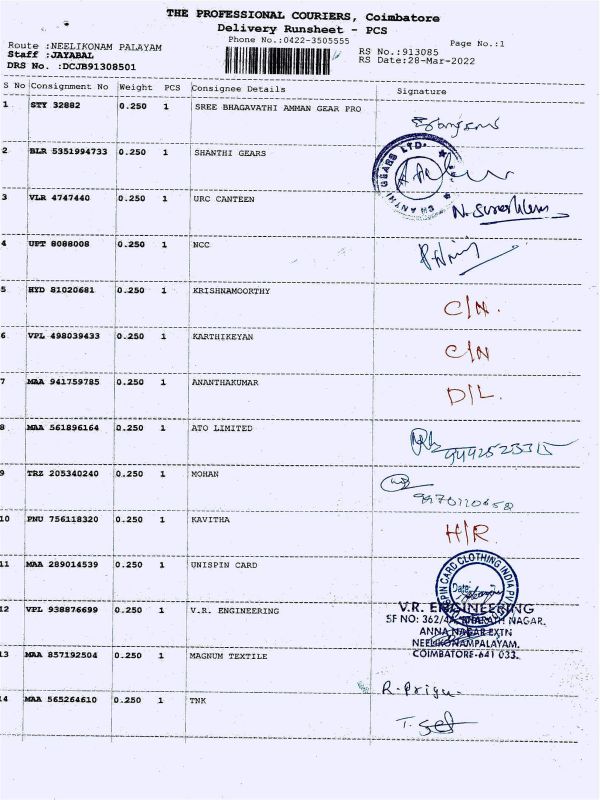 THE PROFESSIONAL COURIERS, Coimbatore
Delivery Runsheet - PCS
Phone No.:0422-3505555
Page No.:1
Route :NEELIKONAM PALAYAM
Staff :JAYABAL
DRS No. :DCJB91308501
RS No.:913085
RS Date:28-Mar-2022
S No Consignment No Weight PCS Consignee Details Signature
1 STY 32882 0.250 1 SREE BHAGAVATHI AMMAN GEAR PRO
2 BLR 5351994733 0.250 1 SHANTHI GEARS
3 VLR 4747440 0.250 1 URC CANTEEN
4 UPT 8088008 0.250 1 NCC
5 HYD 81020681 0.250 1 KRISHNAMOORTHY C/N.
6 VPL 498039433 0.250 1 KARTHIKEYAN C/N
7 MAA 941759785 0.250 1 ANANTHAKUMAR D/L.
8 MAA 561896164 0.250 1 ATO LIMITED
9 TRZ 205340240 0.250 1 MOHAN
10 PNU 756118320 0.250 1 KAVITHA H/R
11 MAA 289014539 0.250 1 UNISPIN CARD
12 VPL 938876699 0.250 1 V.R. ENGINEERING
V.R. ENGINEERING
SF NO: 362/4A, BHARATH NAGAR,
ANNA NAGAR EXTN
NEELIKONAMPALAYAM,
COIMBATORE-641 033.
13 MAA 857192504 0.250 1 MAGNUM TEXTILE R. Priya
14 MAA 565264610 0.250 1 TNK